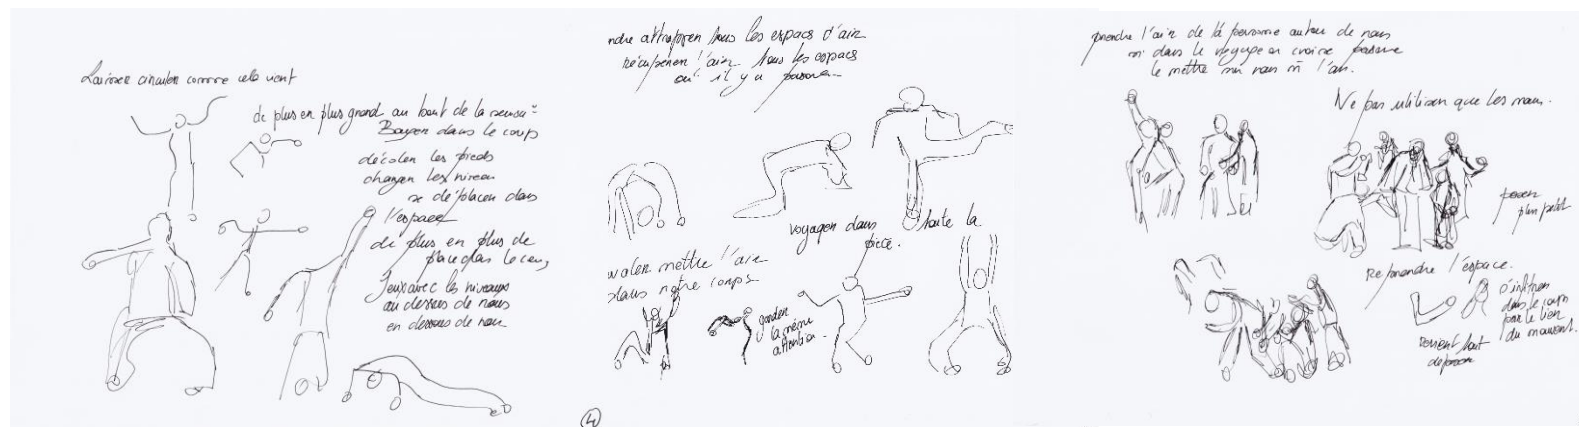 Laisser circuler comme cela vient
de plus en plus grand au bout de la
Bouger dans le corps
décoler les pieds
changer les niveau
se déplacer dans
l'espace
de plus en plus de
place dans le corps
Jeux avec les niveaux
au dessus de nous
en dessous de nous
attrapper tous les espaces d'air
récupérer l'air tous les espaces
où il y a
voyager dans toute la
pièce.
mettre l'air
dans notre corps
garder
la même
attention.
4
prendre l'air de la personne autour de nous
si dans le on croise
le mettre sur nous l'air.
Ne pas utiliser que les mains.
plus petit
Reprendre l'espace.
s'infiltrer
dans le corps
par le lien
du mouvement.